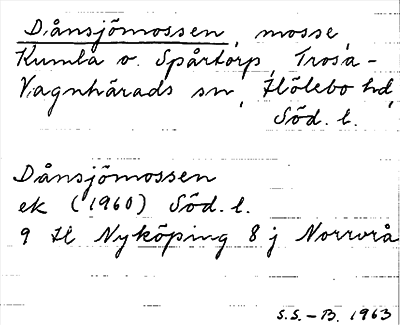 Dånsjömossen, mosse
Kumla o. Spårtorp, Trosa-
Vagnhärads sn, Hölebo hd,
Söd. l.
Dånsjömossen
ek (1960) Söd. l.
9 H Nyköping 8 j Norrvrå
S.S.-B. 1963